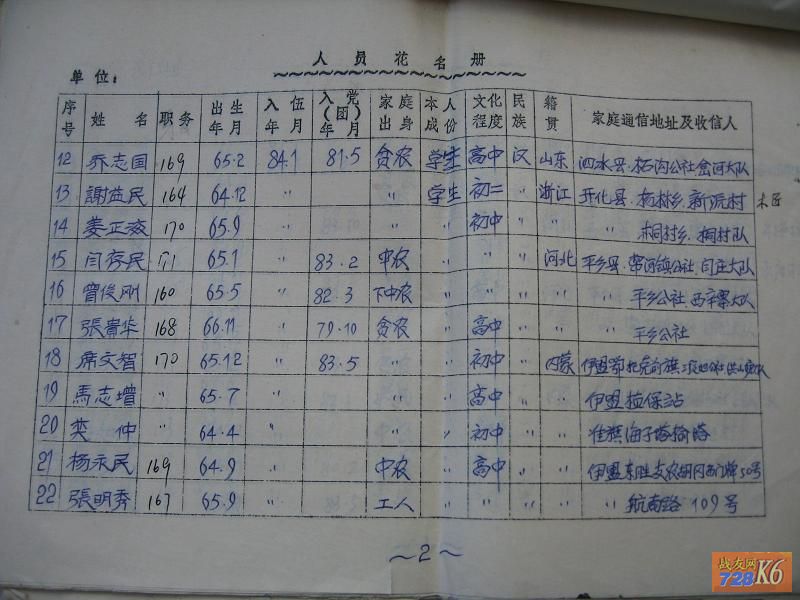 人员花名册
单位：
序号 姓名 职务 出生年月 入伍年月 入党(团)年月 家庭出身 本人成份 文化程度 民族 籍贯 家庭通信地址及收信人
12 乔志国 169 65.2 84.1 81.5 贫农 学生 高中 汉 山东 泗水县.柘沟公社 大队
13 謝益民 164 64.12 〃 〃 学生 初二 〃 浙江 开化县.杨林乡.新 村 木匠
14 姜正 170 65.9 〃 〃 〃 初中 〃 〃 〃 桐村乡.桐村队
15 闫存民 171 65.1 〃 83.2 中农 〃 〃 〃 河北 平乡县.常河镇公社.闫庄大队
16 曾俊刚 160 65.5 〃 82.3 下中农 〃 〃 〃 〃 〃 平乡公社.西辛寨大队
17 張貴华 168 66.11 〃 79.10 贫农 〃 高中 〃 〃 〃 平乡公社
18 席文智 170 65.12 〃 83.5 〃 〃 初中 〃 内蒙 伊盟鄂托克前旗
19 馬志增 〃 65.7 〃 〃 〃 高中 〃 〃 伊盟 保站
20 仲 〃 64.4 〃 〃 〃 初中 〃 〃 准旗海子塔
21 杨永民 169 64.9 〃 中农 〃 高中 〃 〃 伊盟东胜 50号
22 張明秀 167 65.9 〃 工人 〃 〃 〃 〃 〃 航南路109号
～2～
战友网
728K6